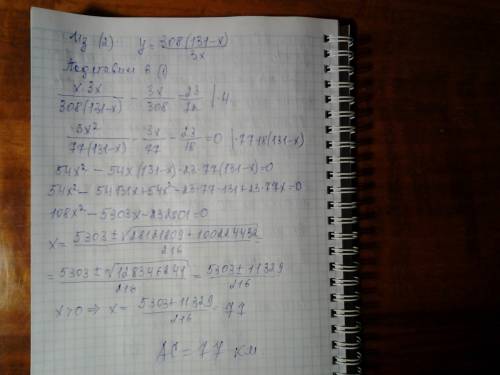 Из (2) y = 308(131-x)/3x
Подставим в (1)
x·3x/308(131-x) - 3x/308 = 23/72 |·4
3x²/77(131-x) - 3x/77 - 23/18 = 0 |·77·18(131-x)
54x² - 54x(131-x) - 23·77(131-x)=0
54x² - 54·131x + 54x² - 23·77·131 + 23·77x = 0
108x² - 5303x - 232001 = 0
x = 5303 ± √28121809 + 100224432/216
= 5303 ± √128346241/216 = 5303 ± 11329/216
x>0 ⇒ x = 5303+11329/216 = 77
AC = 77 км